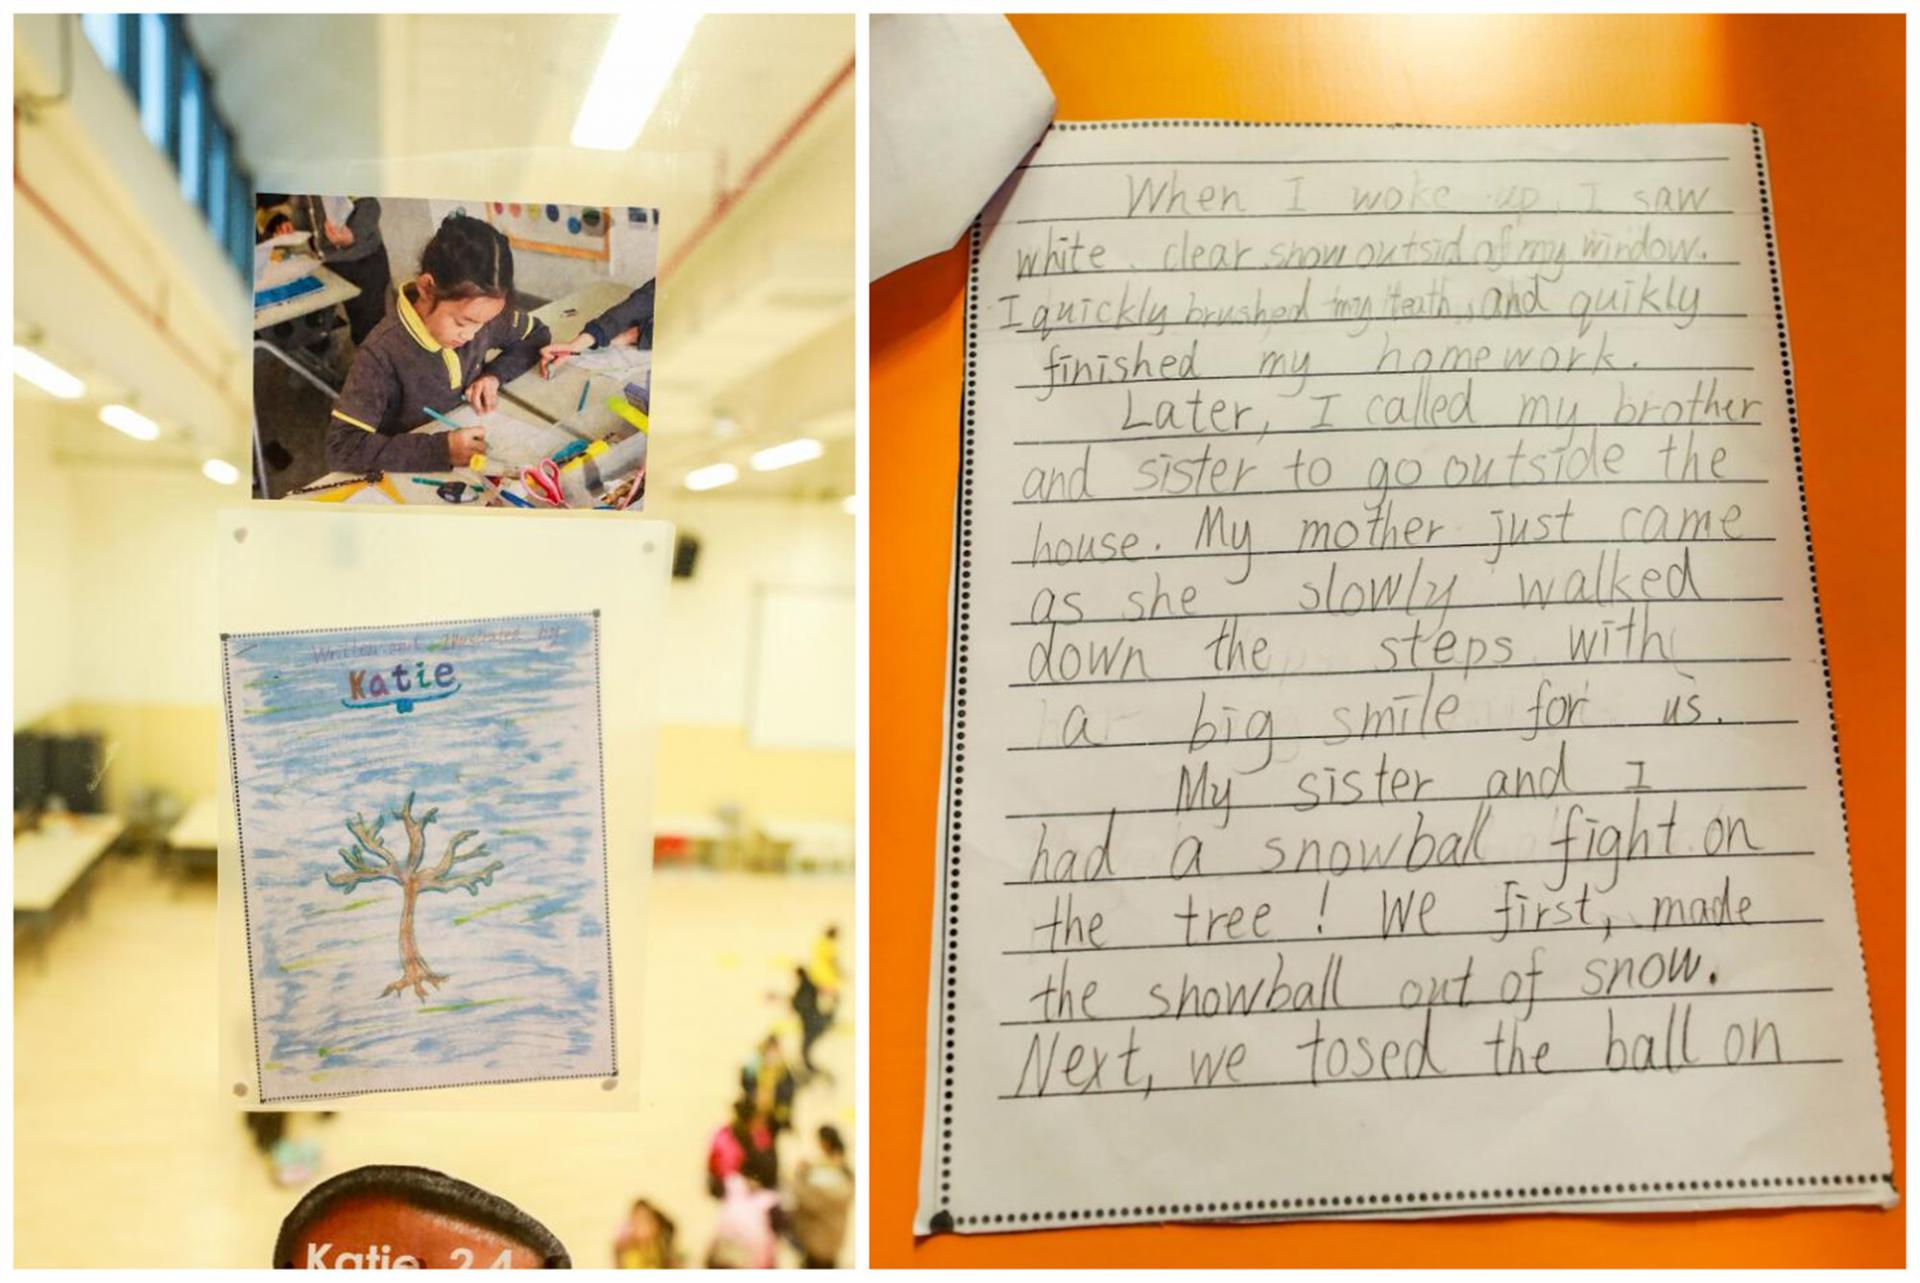 Written and Illustrated by
Katie
Katie 2.4
When I woke up, I saw
white, clear snow outsid of my window.
I quickly brushed my teath, and quikly
finished my homework.
Later, I called my brother
and sister to go outside the
house. My mother just came
as she slowly walked
down the steps with
a big smile for us.
My sister and I
had a snowball fight on
the tree! We first, made
the snowball out of snow.
Next, we tosed the ball on